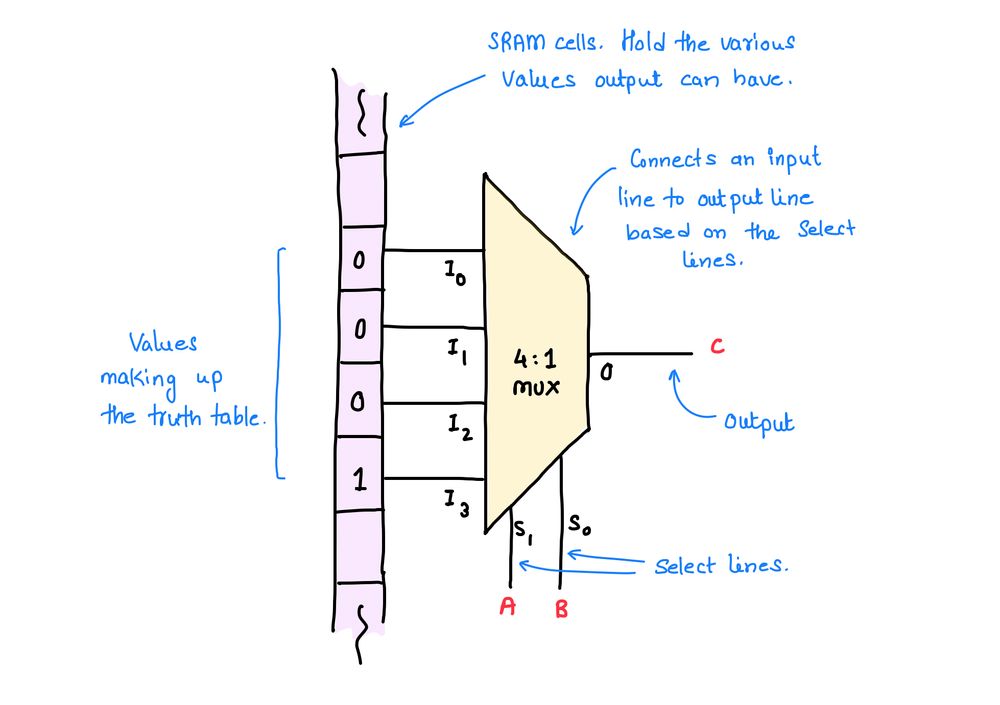 SRAM cells. Hold the various
Values output can have.
Connects an input
line to output line
based on the Select
lines.
0
I0
0
I1
Values
making up
the truth table.
0
I2
1
I3
4:1
MUX
O
C
Output
S1
S0
Select lines.
A
B